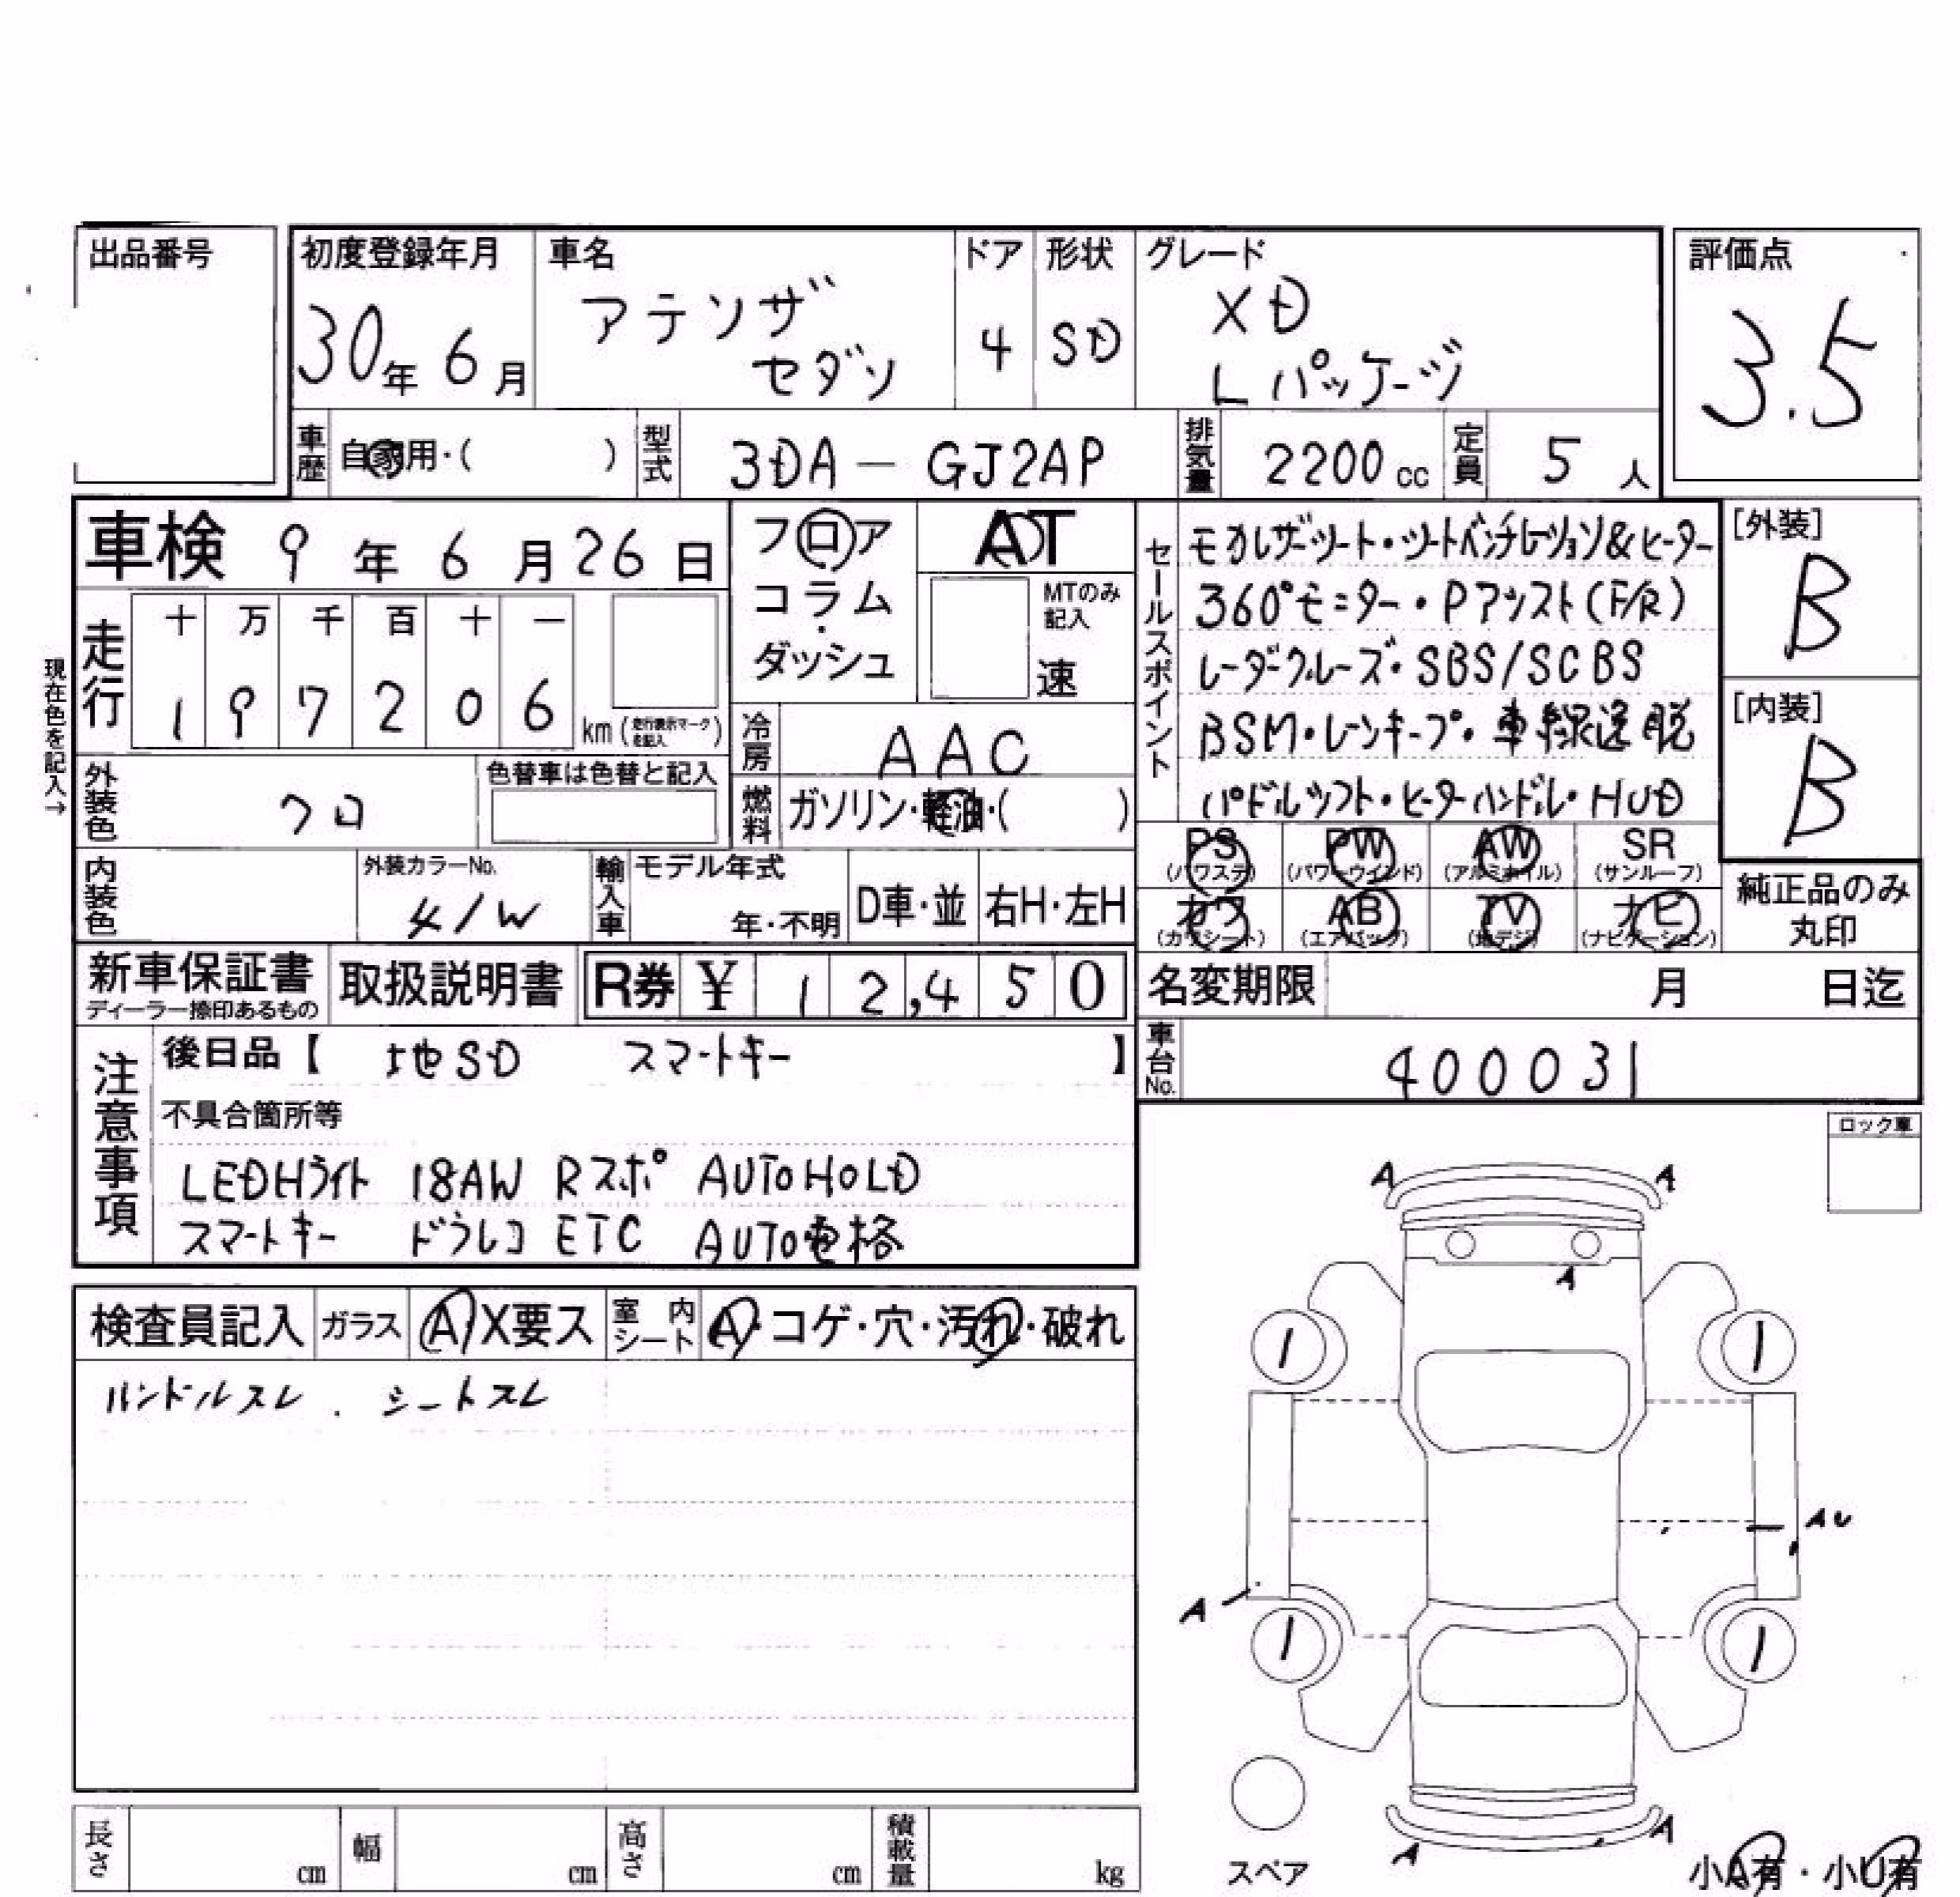 出品番号
初度登録年月 車名 ドア 形状 グレード 評価点
30年 6月 アテンザ セダン 4 SD XD Lパッケージ 3.5
車歴 自家用・( ) 型式 3DA - GJ2AP 排気量 2200cc 定員 5人
車検 9年 6月 26日
フロア コラム・ダッシュ
AT
MTのみ記入
速
セールスポイント
モカレザーシート・シートベンチレーション&ヒーター
360°モニター・Pアシスト(F/R)
レーダークルーズ・SBS/SCBS
BSM・レーンキープ・車線逸脱
パドルシフト・ヒーターハンドル・HUD
[外装]
B
[内装]
B
現在色を記入→
走行 十 万 千 百 十 一
1 9 7 2 0 6 km (走行表示マークを記入)
冷房 AAC
外装色 クロ
色替車は色替と記入
燃料 ガソリン・軽油・( )
PS (パワステ) PW (パワーウィンド) AW (アルミホイル) SR (サンルーフ)
カワ (カワシート) AB (エアバッグ) TV (地デジ) ナビ (ナビゲーション)
純正品のみ丸印
内装色
外装カラーNo.
41W
輸入車 モデル年式 年・不明 D車・並 右H・左H
新車保証書
ディーラー捺印あるもの
取扱説明書
R券 ¥ 12,450
名変期限 月 日迄
車台No. 400031
注意事項
後日品【 地SD スマートキー 】
不具合箇所等
LEDHライト 18AW Rスポ AUTOHOLD
スマートキー ドラレコ ETC AUTO電格
ロック車
検査員記入 ガラス A X要ス 室内シート A・コゲ・穴・汚れ・破れ
ハンドルスレ . シートスレ
A A
A
1 1
AU
A
1 1
A A
スペア
小A有・小U有
長さ cm 幅 cm 高さ cm 積載量 kg